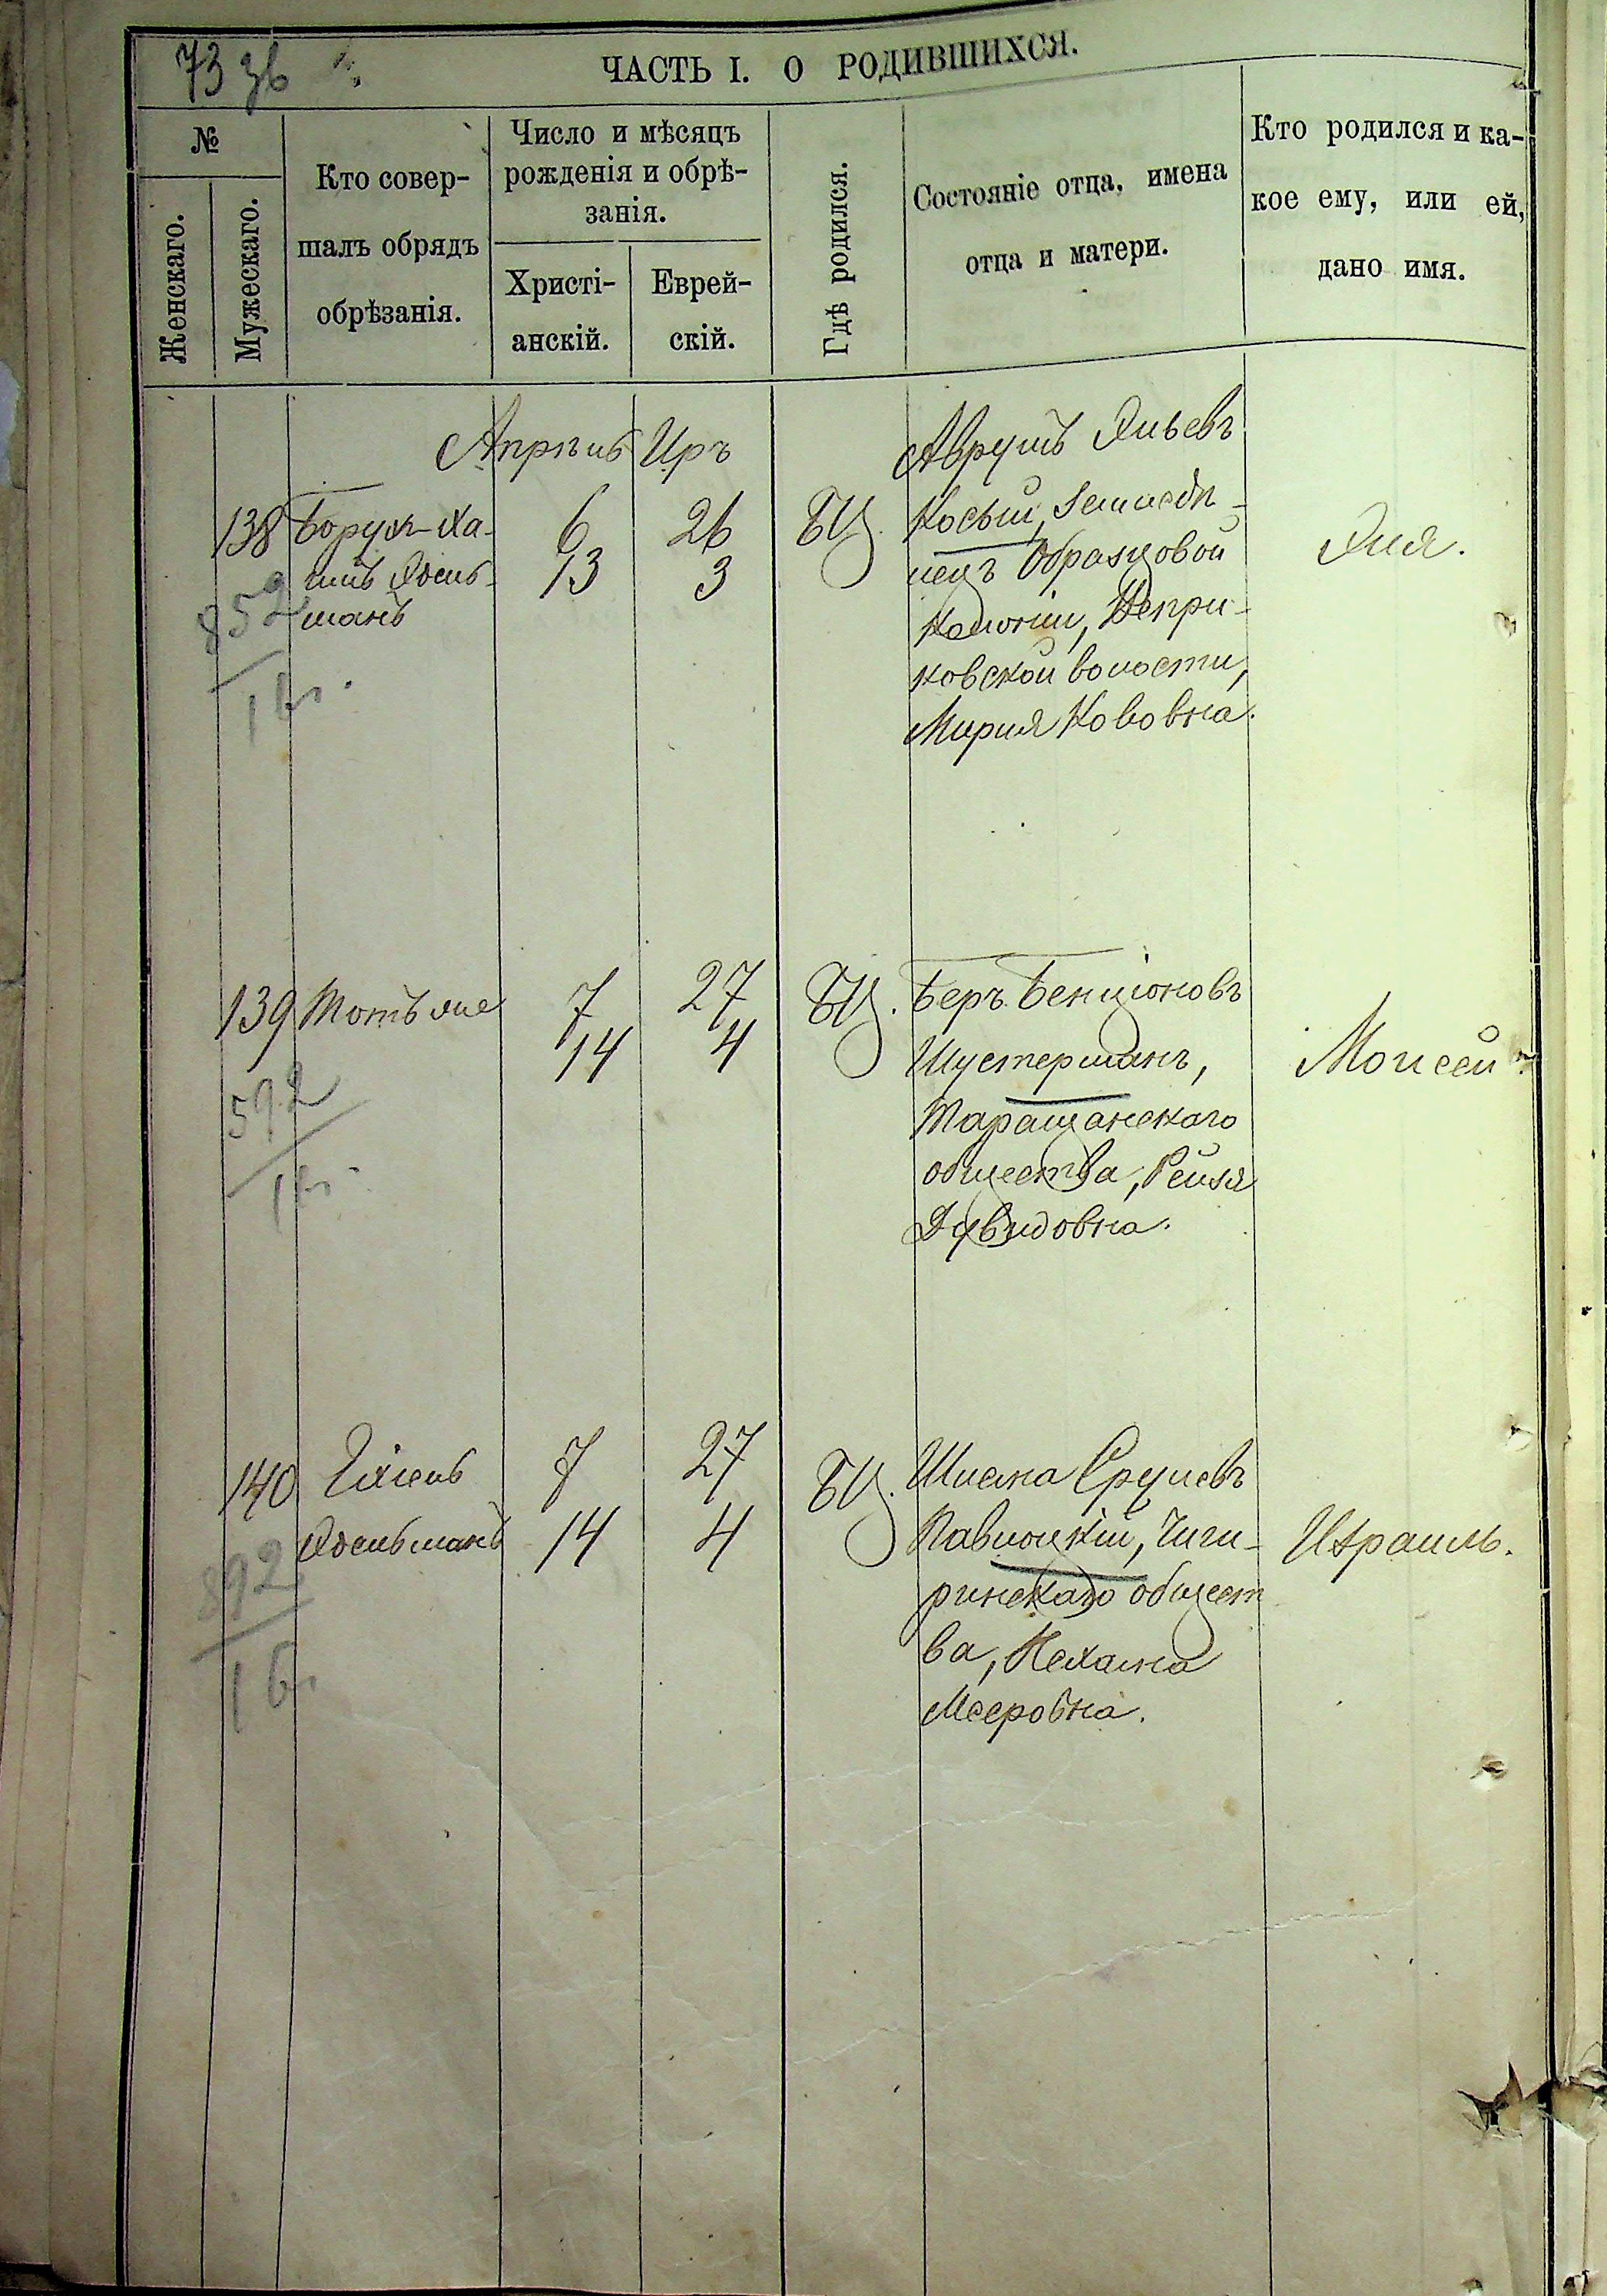 73 зв
ЧАСТЬ I. О РОДИВШИХСЯ.
№
Женскаго.
Мужескаго.
Кто совер-
шалъ обрядъ
обрѣзанія.
Число и мѣсяцъ
рожденія и обрѣ-
занія.
Христі-
анскій.
Еврей-
скій.
Гдѣ родился.
Состояніе отца, имена
отца и матери.
Кто родился и ка-
кое ему, или ей,
дано имя.
Апрѣль Иръ
138
Борух-Ха-
имъ Эдель-
манъ
6
13
26
3
БЦ.
Аврумъ Эльевъ
Косый, Землевл-
нецъ Образцовой
Колоніи,
ковской волости,
Мирия Вововна.
Эля.
139
7
14
27
4
БЦ.
Беръ Бенціоновъ
Шустерманъ,
Таращанскаго
общества, Рейзя
Дувидовна.
Моисей
592
140
Іхіель
Эдельманъ
7
14
27
4
БЦ.
Шиека Срулевъ
Павлоцкій, Чиги-
ринскаго общест
ва, Нехама
Мееровна.
Израиль.
892